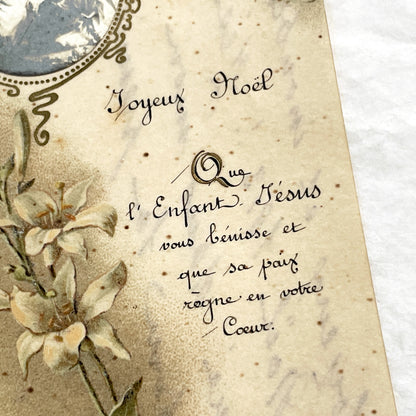 Joyeux Noël
Que
l'Enfant Jésus
vous bénisse et
que sa paix
règne en votre
Coeur.